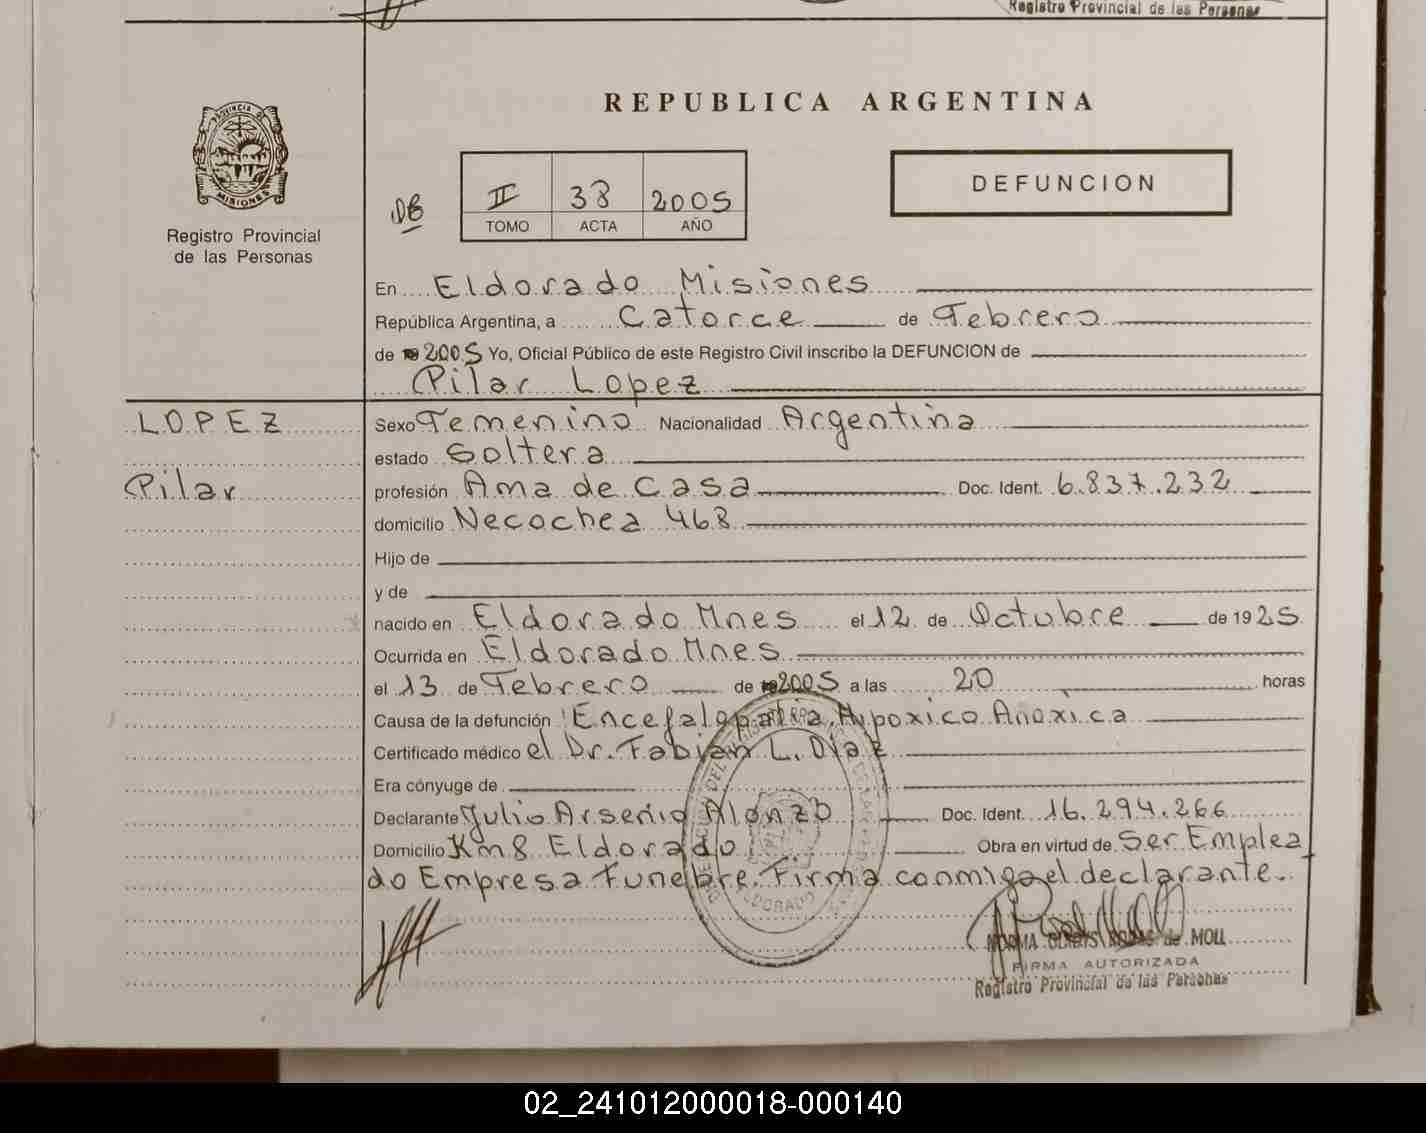 Registro Provincial de las Personas
REPUBLICA ARGENTINA
PROVINCIA D
MISIONES
Registro Provincial
de las Personas
DB
II 38 2005
TOMO ACTA AÑO
DEFUNCION
En Eldorado Misiones
República Argentina, a Catorce de Febrero
de 2005 Yo, Oficial Público de este Registro Civil inscribo la DEFUNCION de
Pilar Lopez
LOPEZ
Pilar
Sexo Femenino Nacionalidad Argentina
estado Soltera
profesión Ama de Casa Doc. Ident. 6.837.232
domicilio Necochea 468
Hijo de
y de
nacido en Eldorado Mnes el 12 de Octubre de 1925
Ocurrida en Eldorado Mnes
el 13 de Febrero de 2005 a las 20 horas
Causa de la defunción Encefalopatia Hipoxico Anoxica
Certificado médico el Dr. Fabian L. Diaz
Era cónyuge de
Declarante Julio Arsenio Alonzo Doc. Ident. 16.294.266
Domicilio Km 8 Eldorado Obra en virtud de Ser Emplea
do Empresa Funebre. Firma conmigo el declarante.
ELDORADO
NORMA GLADYS RODAS de MOLL
FIRMA AUTORIZADA
Registro Provincial de las Personas
02_241012000018-000140